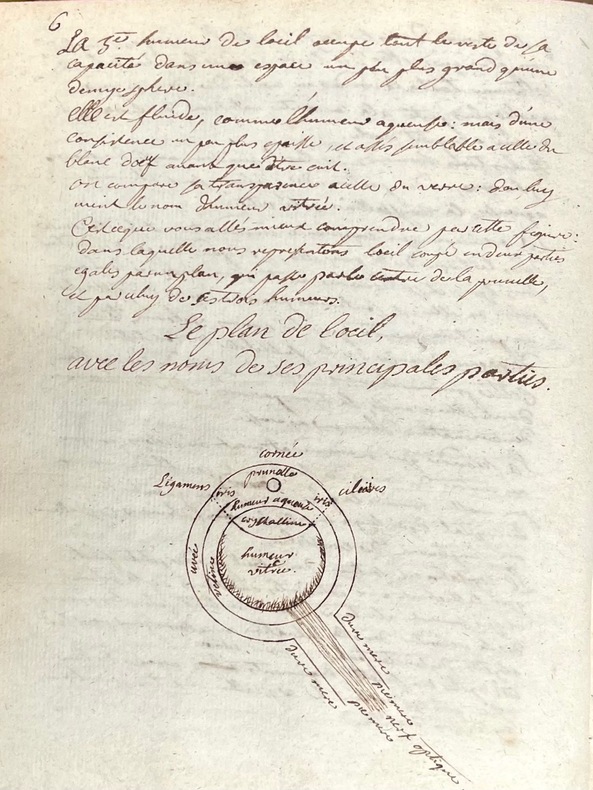 6
La 3.e humeur de loeil occupe tout le reste de sa
capacité dans un espace un peu plus grand quune
demye sphere.
elle est fluide, comme l'humeur aqueuse: mais d'une
consistence un peu plus epaisse, et assés semblable a celle du
blanc doeuf avant que d'etre cuit.
on compare sa transparence a celle du verre: d'ou luy
vient le nom d'humeur vitrée.
C'est ce que vous allés mieux comprendre par cette figure:
dans laquelle nous representons loeil coupé en deux parties
egales par un plan, qui passe par le centre de la prunelle,
et par celuy de ces trois humeurs.
Le plan de l'oeil,
avec les noms de ses principales parties.
cornée
prunelle
Ligamens
iris
iris
ciliaires
humeur aqueuse
crystalline
humeur
vitrée.
uvée
retine
dure mere
pie mere
nerf optique
dure mere
pie mere